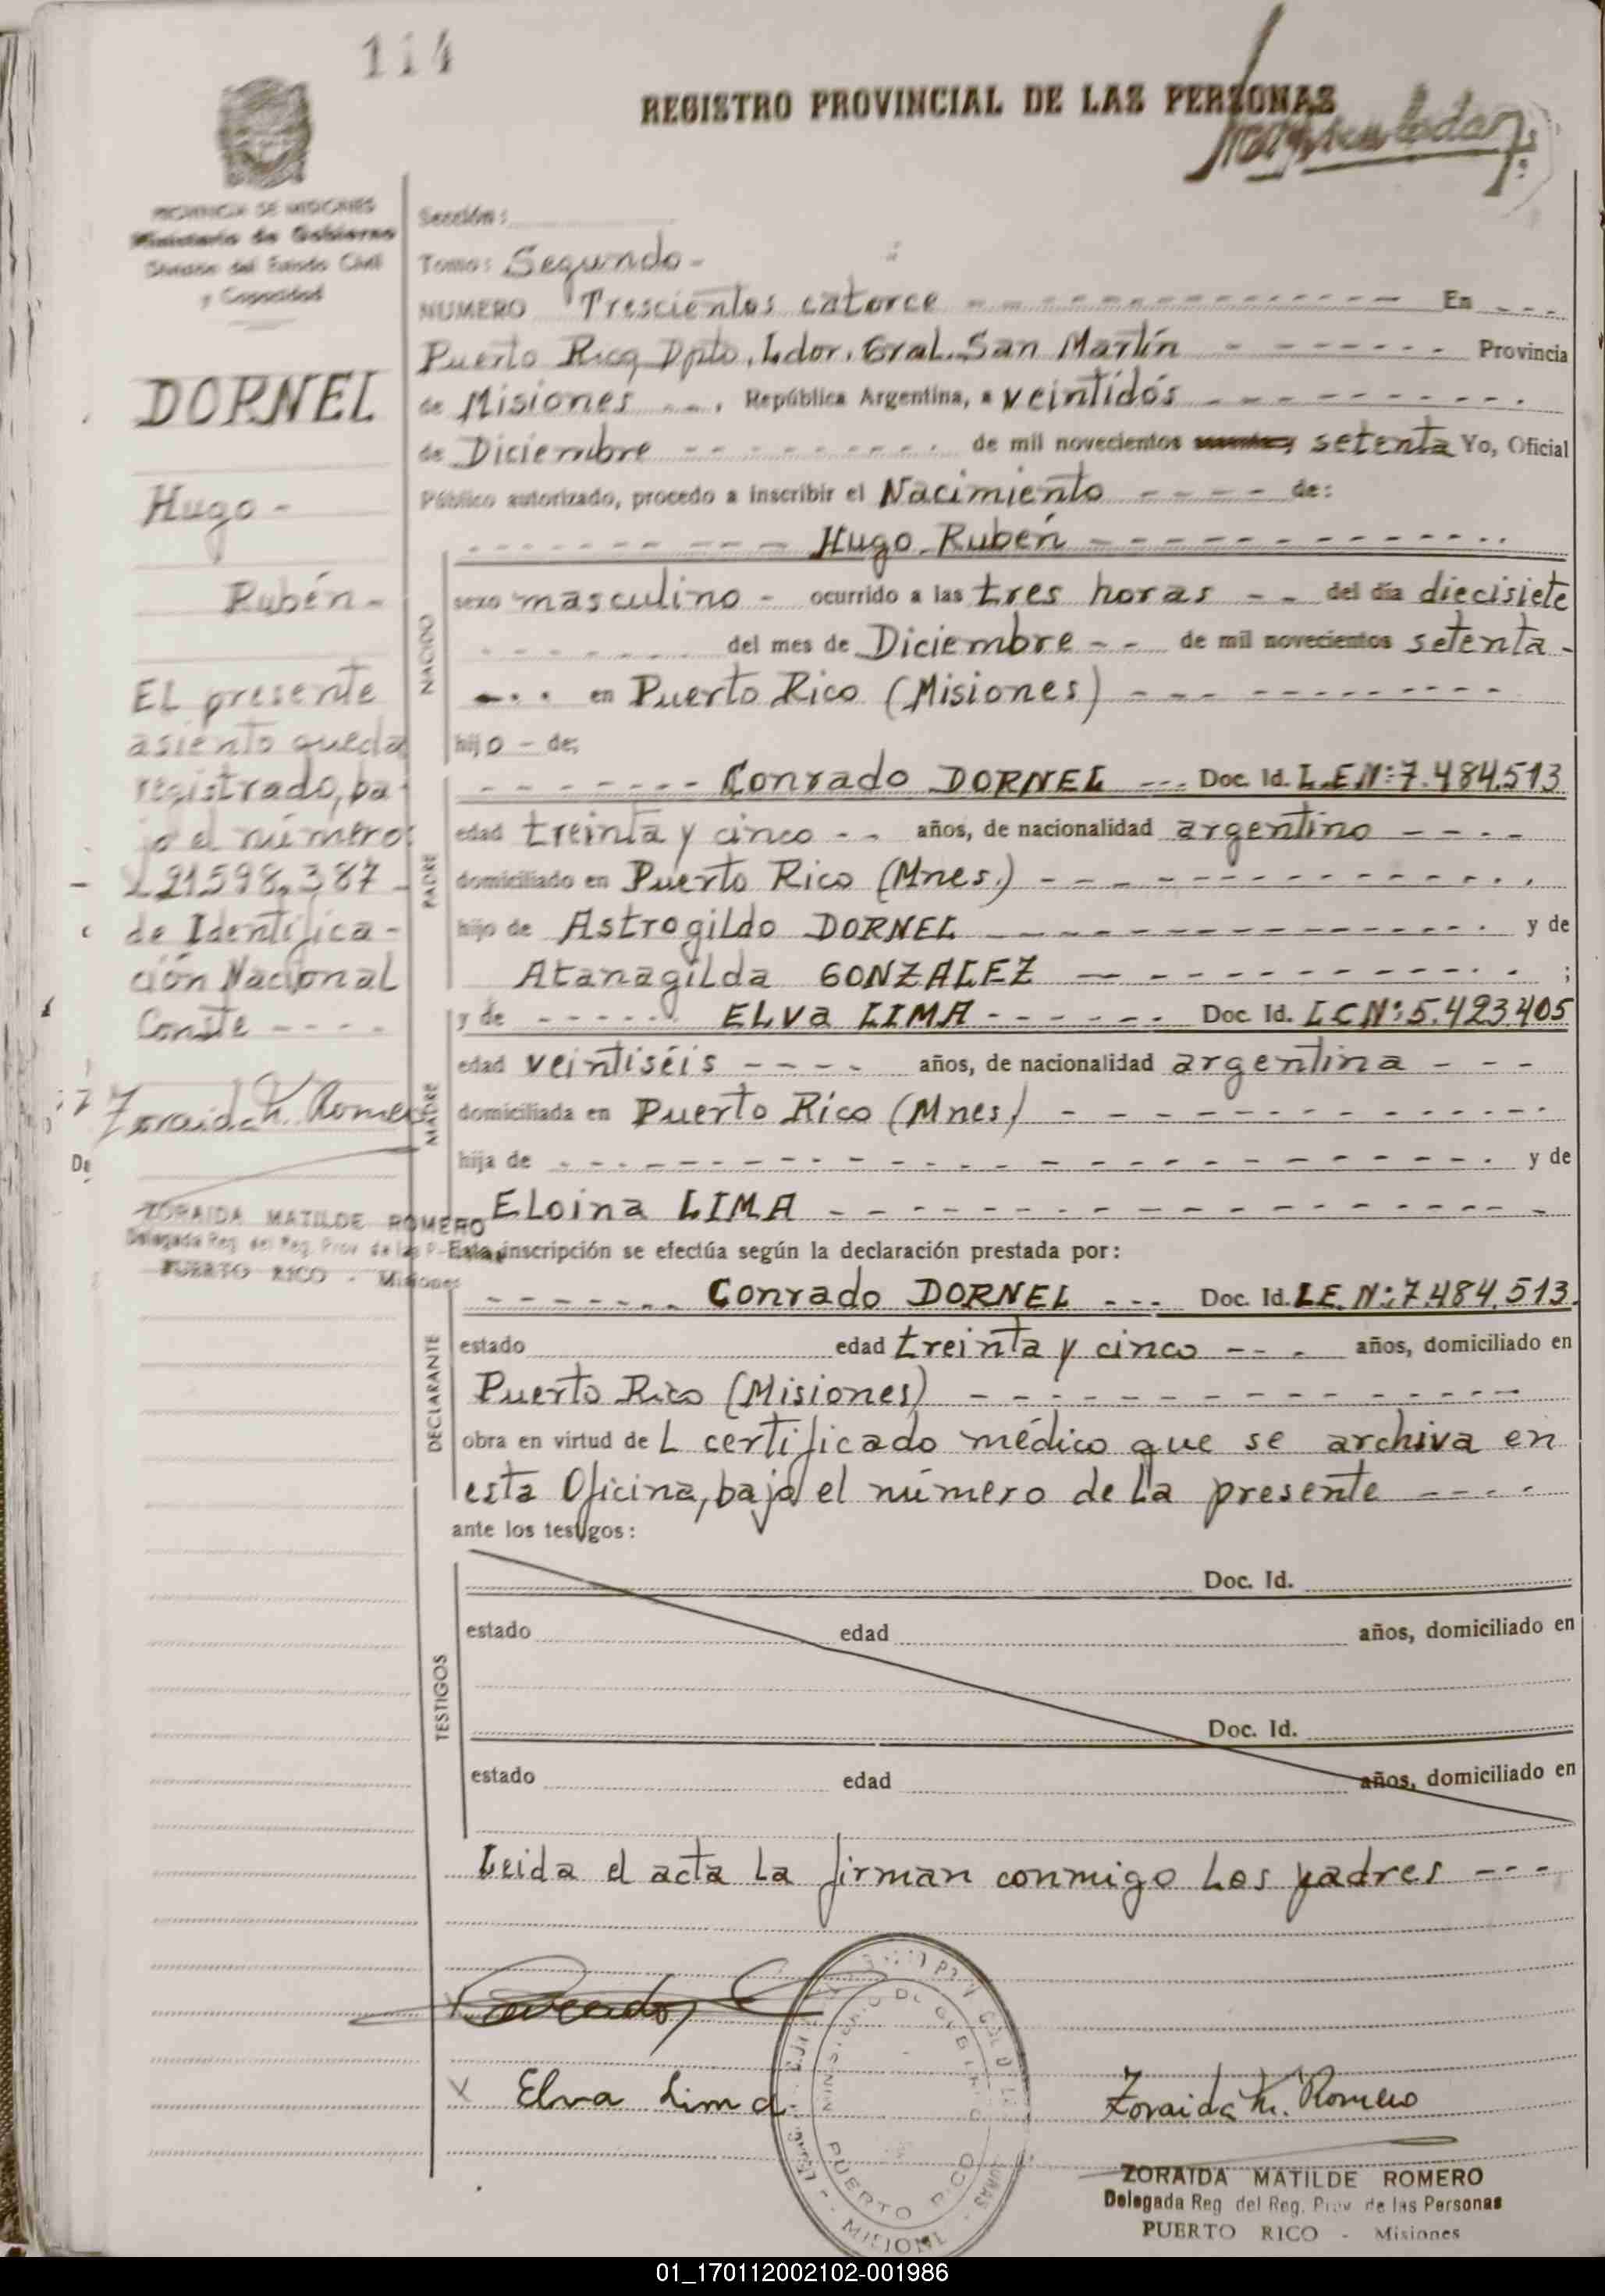 114
REGISTRO PROVINCIAL DE LAS PERSONAS
PROVINCIA DE MISIONES
Ministerio de Gobierno
División del Estado Civil
y Capacidad
Sección:
Tomo: Segundo -
NUMERO Trescientos catorce - - - En - - -
Puerto Rico, Dpto. Ldor. Gral. San Martín - - - Provincia
de Misiones - - -, República Argentina, a veintidós - - -
de Diciembre - - - de mil novecientos setenta Yo, Oficial
Público autorizado, procedo a inscribir el Nacimiento - - - - de:
- - - Hugo Rubén - - -
NACIDO
sexo masculino - ocurrido a las tres horas - - del día diecisiete
- - - del mes de Diciembre - - de mil novecientos setenta -
- - - en Puerto Rico (Misiones) - - -
hijo - de:
PADRE
- - - Conrado DORNEL - - - Doc. Id. L.E.Nº:7.484.513
edad treinta y cinco - - años, de nacionalidad argentino - - - -
domiciliado en Puerto Rico (Mnes.) - - -
hijo de Astrogildo DORNEL - - - y de
Atanagilda GONZALEZ - - - ;
MADRE
y de - - - ELva LIMA - - - Doc. Id. LCNº:5.423.405
edad veintiséis - - - - años, de nacionalidad argentina - - -
domiciliada en Puerto Rico (Mnes) - - -
hija de - - - y de
ELoina LIMA - - -
Esta inscripción se efectúa según la declaración prestada por:
DECLARANTE
- - - Conrado DORNEL - - - Doc. Id. LE. Nº:7.484.513.
estado edad treinta y cinco - - - años, domiciliado en
Puerto Rico (Misiones) - - -
obra en virtud de L certificado médico que se archiva en
esta Oficina, bajo el número de La presente - - - -
ante los testigos:
TESTIGOS
Doc. Id.
estado edad años, domiciliado en
Doc. Id.
estado edad años, domiciliado en
Leida el acta La firman conmigo Los padres - - -
X
X Elva Lima
Zoraida M. Romero
ZORAIDA MATILDE ROMERO
Delegada Reg. del Reg. Prov. de las Personas
PUERTO RICO - Misiones
MINISTERIO DE GOBIERNO
PUERTO RICO
MISIONES
DORNEL
Hugo -
Rubén -
EL presente
asiento queda
registrado, ba-
jo el número:
21.598.387 -
de Identifica-
ción Nacional
Conste - - - -
Zoraida M. Romero
ZORAIDA MATILDE ROMERO
Delegada Reg. del Reg. Prov. de las P
PUERTO RICO - Misiones
01_170112002102-001986